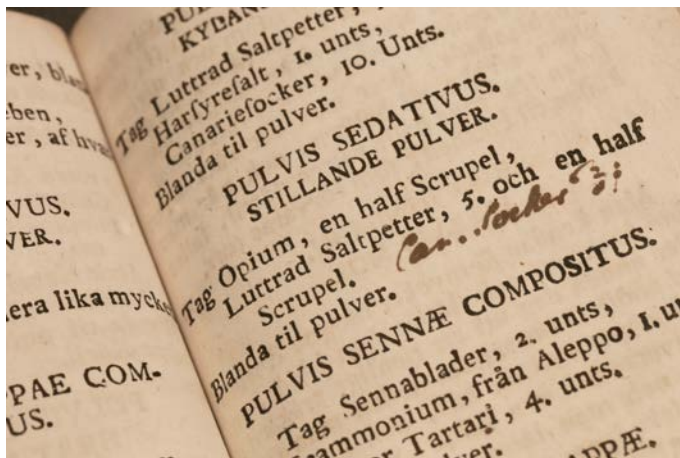 er, bla
eben,
er, af hva
VUS.
VER.
era lika mycke
PPAE COM-
US.
PUL
KYLAN
Tag Luttrad Saltpetter,
Harſyreſalt, 1. unts,
Canarieſocker, 10. Unts.
Blanda til pulver.
PULVIS SEDATIVUS.
STILLANDE PULVER.
Tag Opium, en half Scrupel,
Luttrad Saltpetter, 5. och en half
Scrupel.
Can. Socker
Blanda til pulver.
PULVIS SENNÆ COMPOSITUS.
Tag Sennablader, 2. unts,
Scammonium, från Aleppo, 1. u
or Tartari, 4. unts.
lver.
APPÆ.